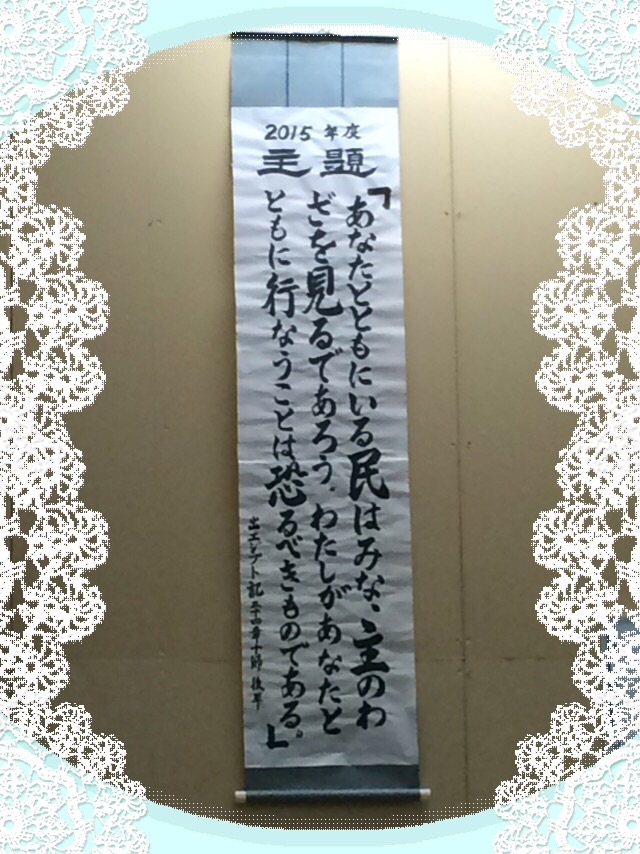 2015年度
主題
「あなたとともにいる民はみな、主のわ
ざを見るであろう。わたしがあなたと
ともに行なうことは恐るべきものである。」
出エジプト記三十四章十節 後半